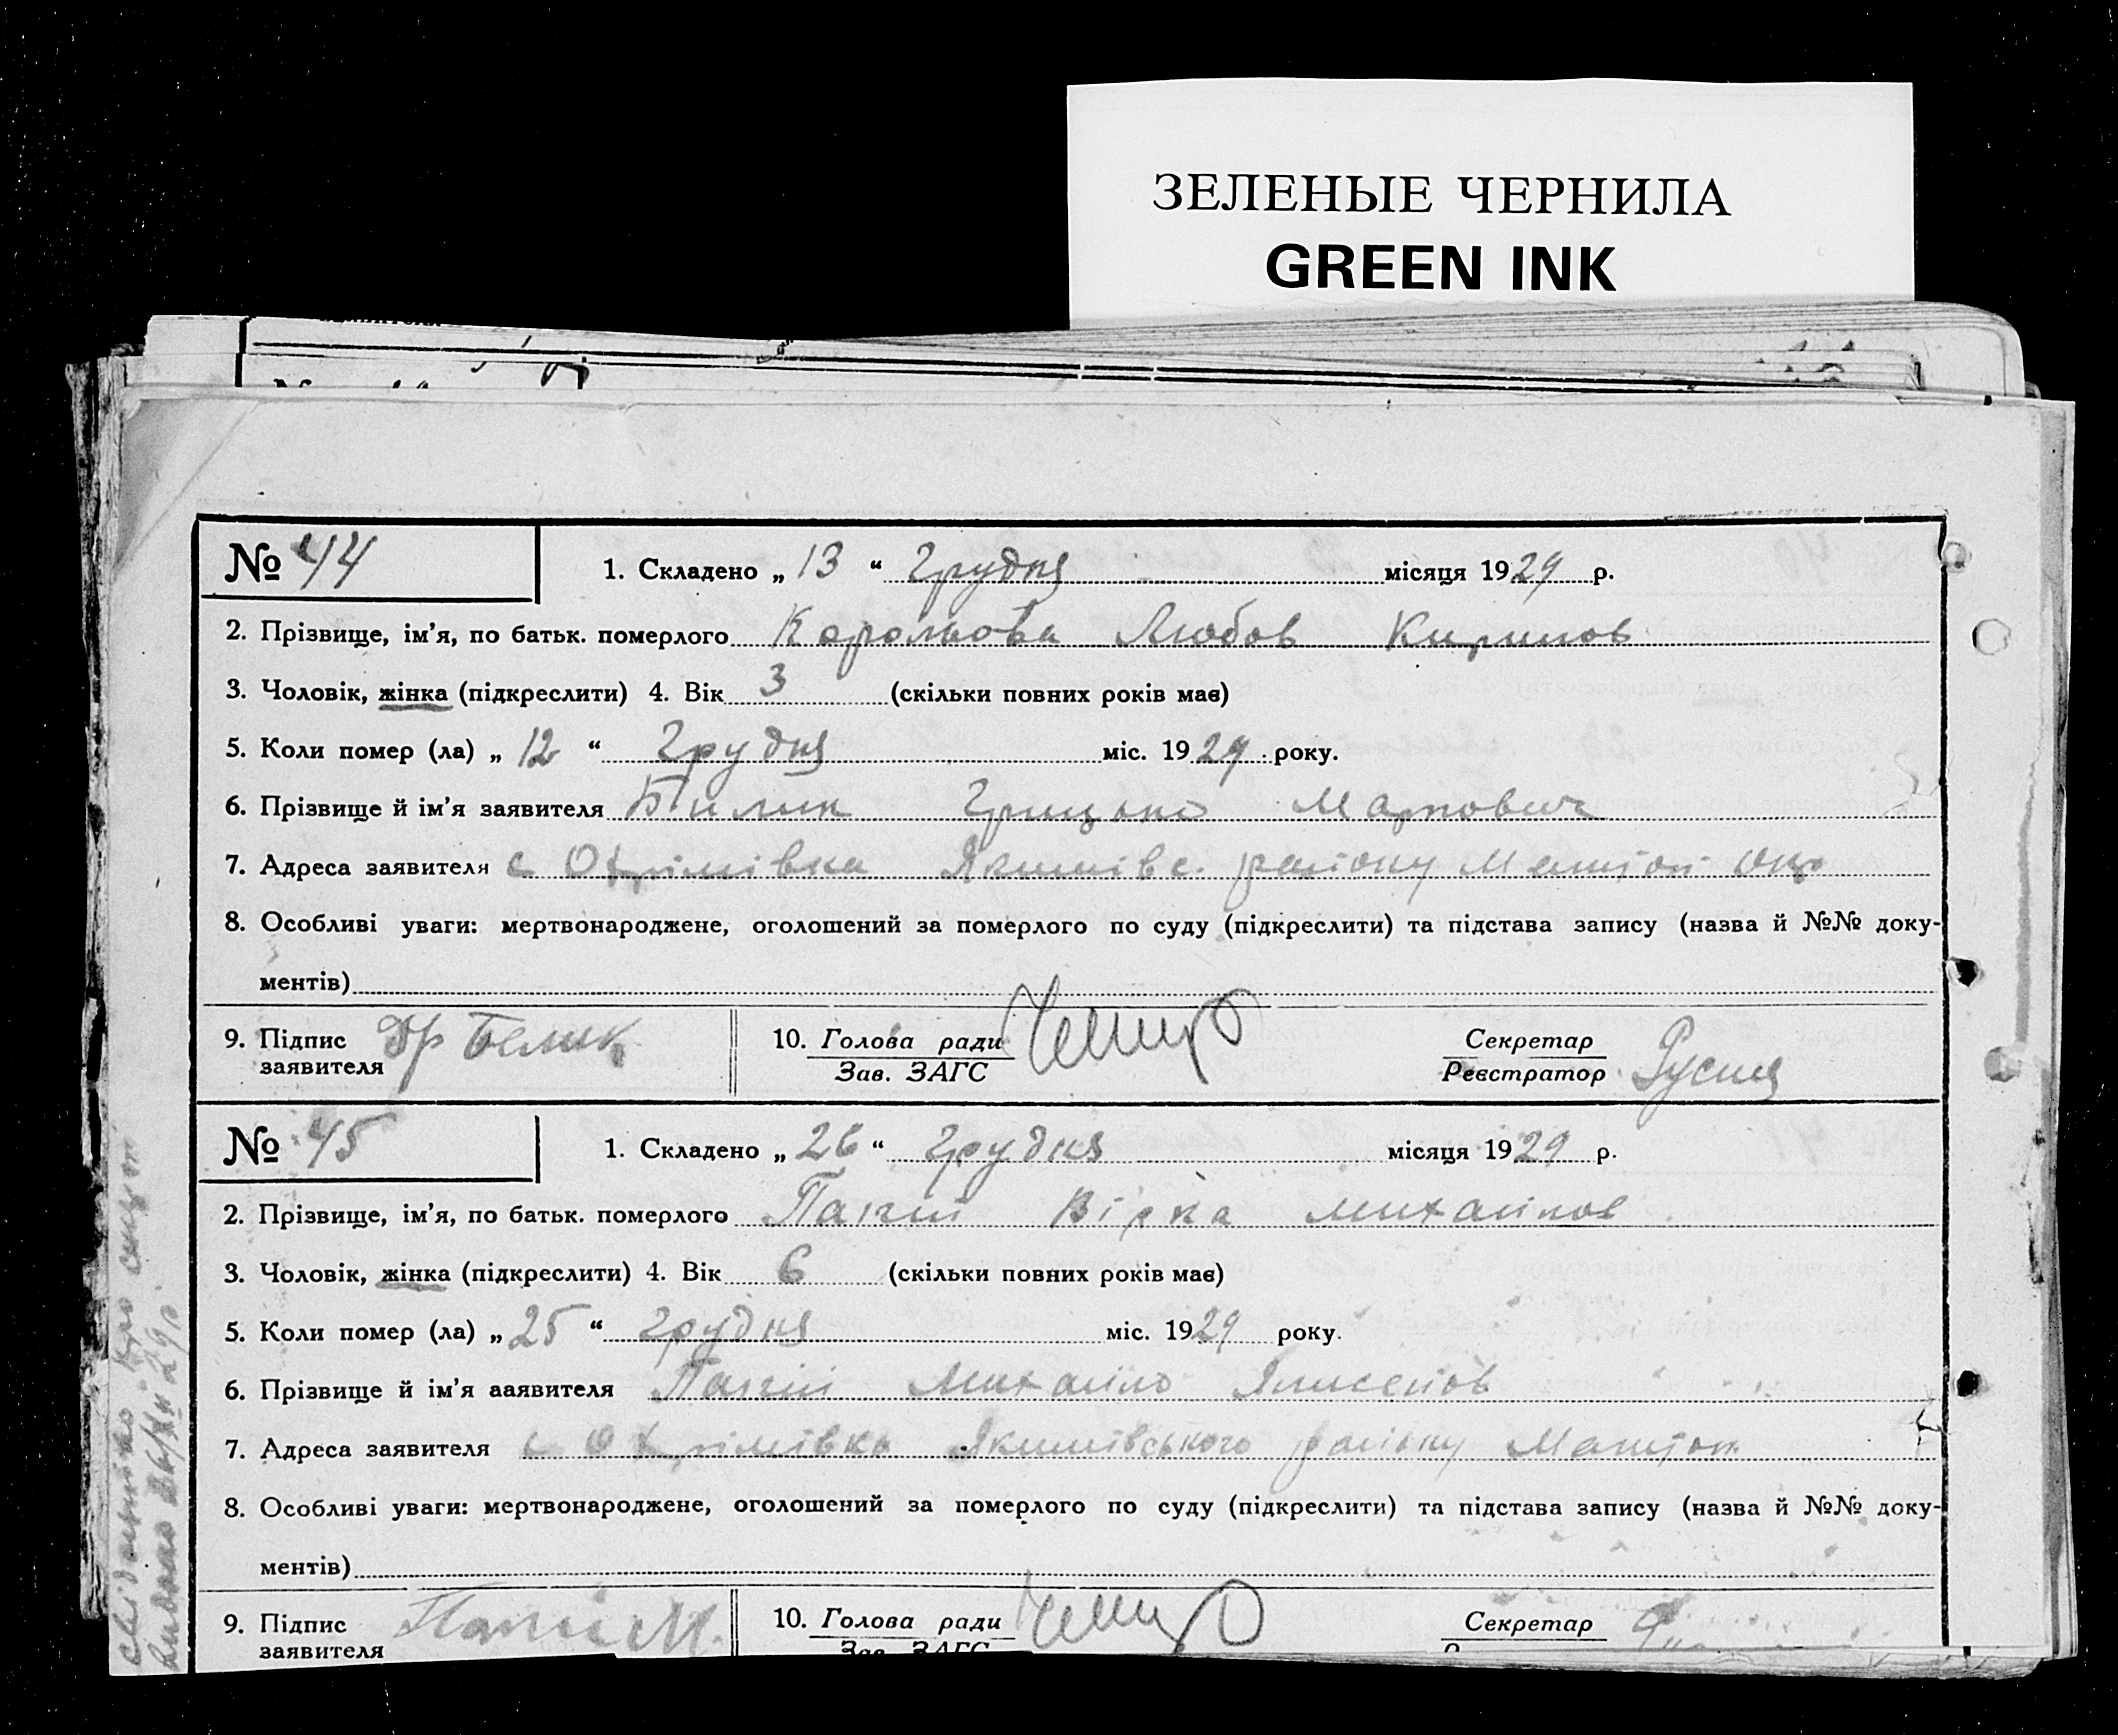 ЗЕЛЕНЫЕ ЧЕРНИЛА
GREEN INK
№ 44
1. Складено „ 13 “ Грудня місяця 1929 р.
2. Прізвище, ім’я, по батьк. померлого Корольова Любов Кирилов
3. Чоловік, жінка (підкреслити) 4. Вік 3 (скільки повних років має)
5. Коли помер (ла) „ 12 “ Грудня міс. 1929 року.
6. Прізвище й ім’я заявителя Билик Грицько Маркович
7. Адреса заявителя с Охрімівка Якимівс. району Меліт окр
8. Особливі уваги: мертвонароджене, оголошений за померлого по суду (підкреслити) та підстава запису (назва й №№ доку-
ментів)
9. Підпис заявителя Гр Белик
10. Голова ради
Зав. ЗАГС
Секретар
Реєстратор
№ 45
1. Складено „ 26 “ грудня місяця 1929 р.
2. Прізвище, ім’я, по батьк. померлого Вірка Михайлов
3. Чоловік, жінка (підкреслити) 4. Вік 6 (скільки повних років має)
5. Коли помер (ла) „ 25 “ грудня міс. 1929 року.
6. Прізвище й ім’я ааявителя Михайло
7. Адреса заявителя с Охрімівка Якимівського району
8. Особливі уваги: мертвонароджене, оголошений за померлого по суду (підкреслити) та підстава запису (назва й №№ доку-
ментів)
9. Підпис заявителя М.
10. Голова ради
Зав. ЗАГС
Секретар